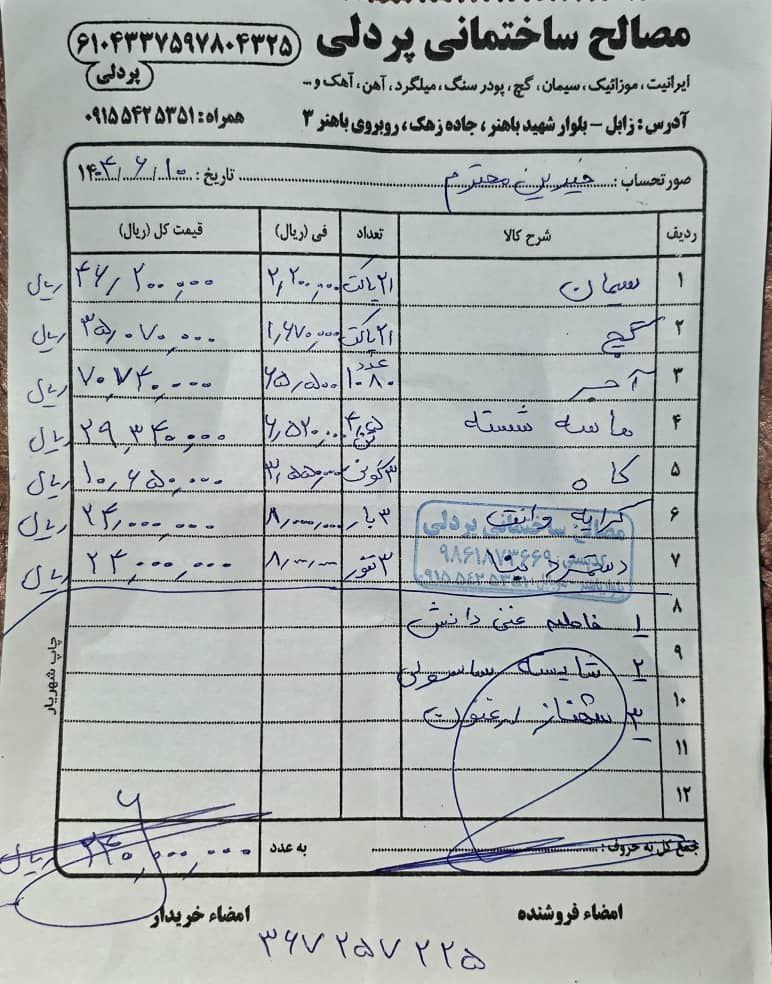 مصالح ساختمانی پردلی
۶۱۰۴۳۳۷۵۹۷۸۰۴۳۲۵
پردلی
ایرانیت، موزائیک، سیمان، گچ، پودر سنگ، میلگرد، آهن، آهک و...
آدرس: زابل - بلوار شهید باهنر، جاده زهک، روبروی باهنر ۳ همراه: ۰۹۱۵۵۴۲۵۳۵۱
صورتحساب: خیرین محترم تاریخ: ۱۴۰۴/۶/۱۰
ردیف شرح کالا تعداد فی (ریال) قیمت کل (ریال)
۱ سیمان ۲۱ پاکت ۲,۲۰۰,۰۰۰ ۴۶,۲۰۰,۰۰۰ ریال
۲ گچ ۲۱ پاکت ۱,۶۷۰,۰۰۰ ۳۵,۰۷۰,۰۰۰ ریال
۳ آجر ۱۰۸۰ عدد ۶۵,۵۰۰ ۷۰,۷۴۰,۰۰۰ ریال
۴ ماسه شسته ۴,۵ تن ۶,۵۲۰,۰۰۰ ۲۹,۳۴۰,۰۰۰ ریال
۵ کاه ۳ گونی ۳,۵۵۰,۰۰۰ ۱۰,۶۵۰,۰۰۰ ریال
۶ کرایه وانت ۳ بار ۸,۰۰۰,۰۰۰ ۲۴,۰۰۰,۰۰۰ ریال
۷ دستمزد بنا ۳ نفر ۸,۰۰۰,۰۰۰ ۲۴,۰۰۰,۰۰۰ ریال
مصالح ساختمانی پردلی
۰۹۱۵۵۴۲۵۳۵۱
۸ ۱ فاطمه غنی دانش
۹ ۲ شایسته ساسولی
۱۰ ۳ شهناز
۱۱
۱۲
جمع کل به حروف: به عدد ۲۴۰,۰۰۰,۰۰۰ ریال
امضاء فروشنده امضاء خریدار
۳۶۷۲۵۷۲۲۵
چاپ شهریار